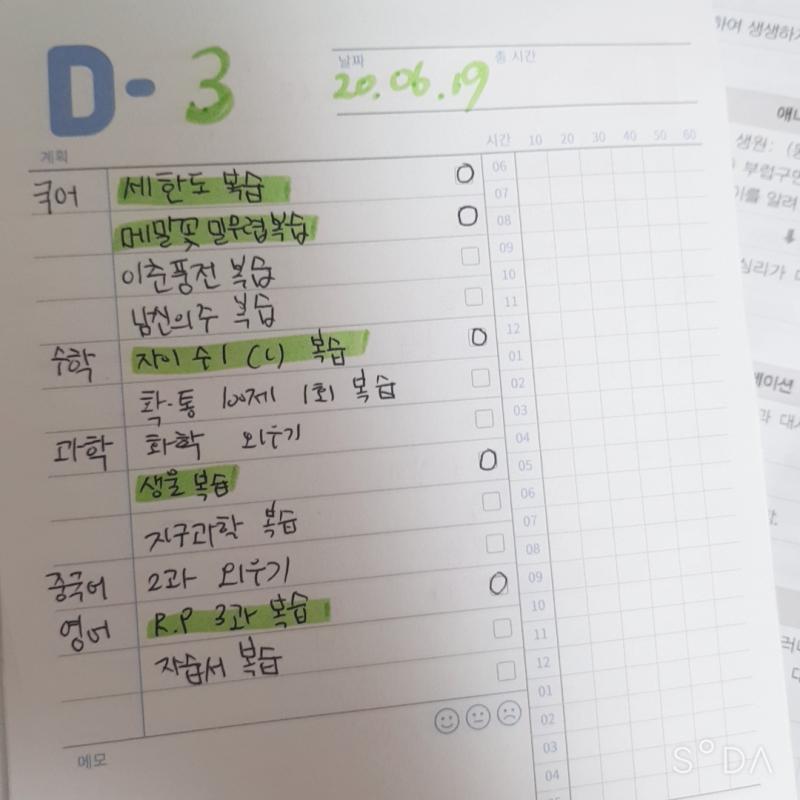 D-3
날짜 총 시간
20.06.19
계획 시간 10 20 30 40 50 60
국어 세한도 복습 06
07
메밀꽃 필 무렵 복습 08
이춘풍전 복습 09
10
남신의주 복습 11
수학 자이 수1 (나) 복습 12
01
확·통 100제 1회 복습 02
03
과학 화학 외우기 04
생물 복습 05
06
지구과학 복습 07
중국어 2과 외우기 08
09
영어 R.P 3과 복습 10
11
자습서 복습 12
01
02
03
메모 04
SODA
하여 생생하게
애니
생원:
부럽구먼
이를 알려
심리가
메이션
과 대사